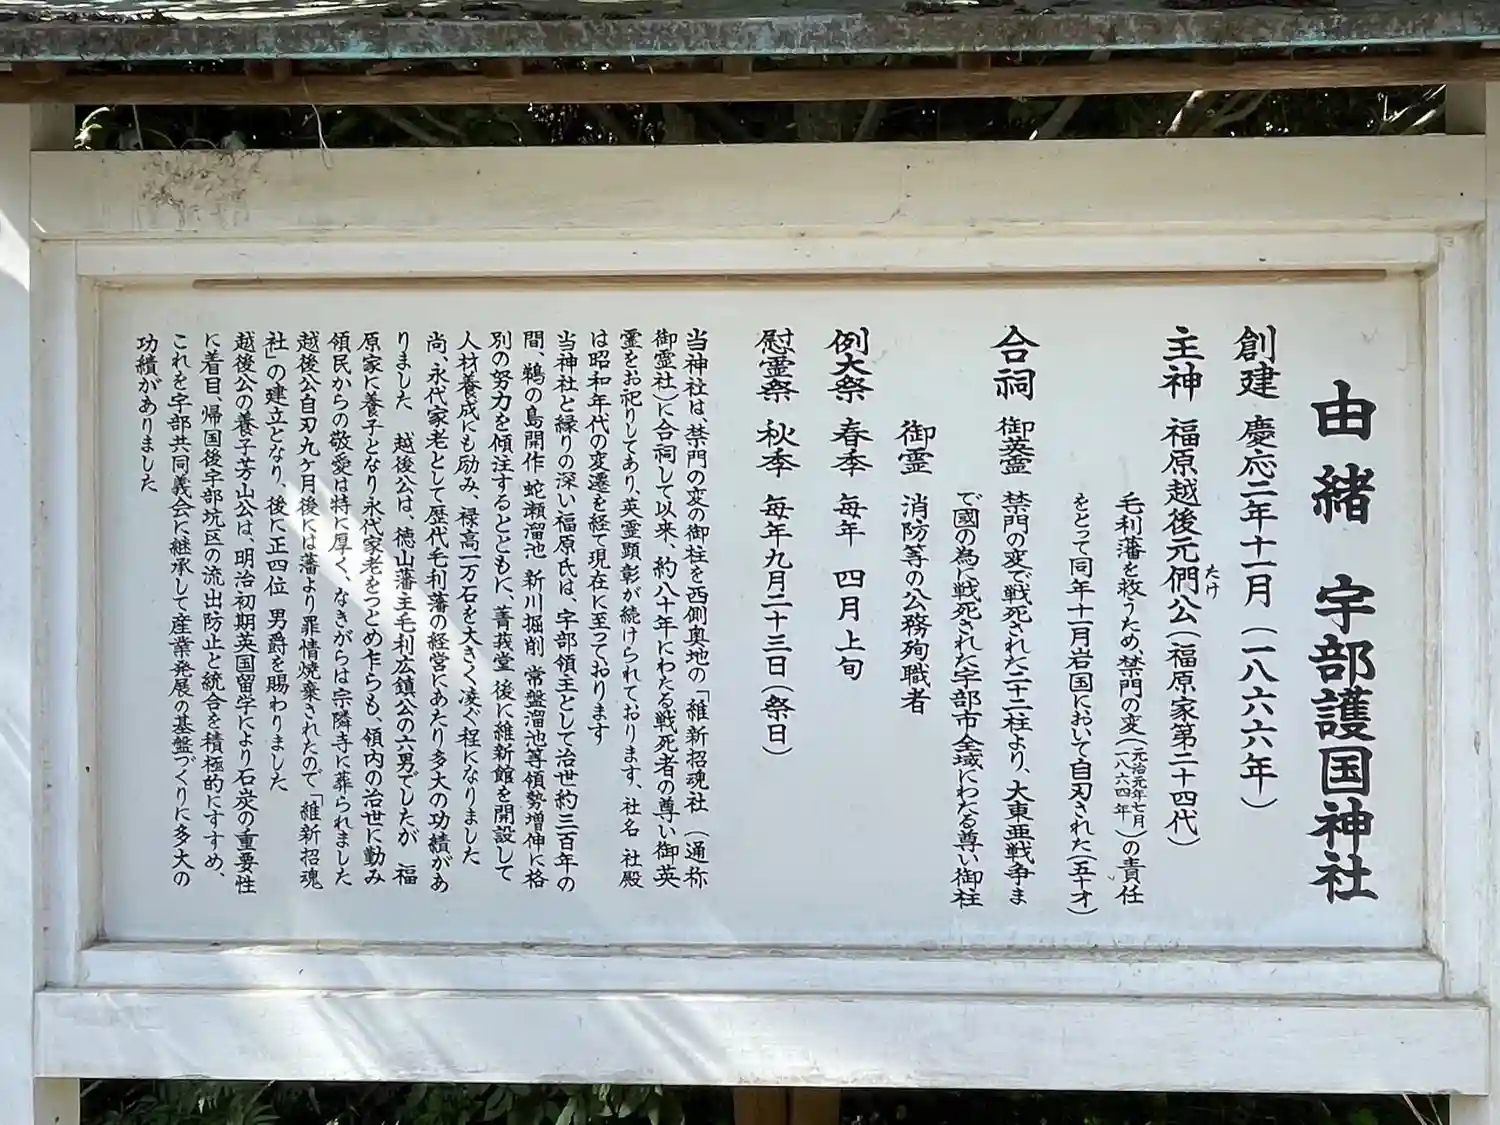 由緒 宇部護国神社
創建 慶応二年十一月（一八六六年）
主神 福原越後元僴公（福原家第二十四代）
たけ
毛利藩を救うため、禁門の変（元治元年七月（一八六四年））の責任
をとって同年十一月岩国において自刃された（五十才）
合祠 御英霊 禁門の変で戦死された二十二柱より、大東亜戦争ま
で國の為に戦死された宇部市全域にわたる尊い御柱
御霊 消防等の公務殉職者
例大祭 春季 毎年 四月上旬
慰霊祭 秋季 毎年九月二十三日（祭日）
当神社は、禁門の変の御柱を西側奥地の「維新招魂社（通称
御霊社）に合祠して以来、約八十年にわたる戦死者の尊い御英
霊をお祀りしてあり、英霊顕彰が続けられております、社名 社殿
は昭和年代の変遷を経て現在に至っております
当神社と縁りの深い福原氏は、宇部領主として治世約三百年の
間、鵜の島開作 蛇瀬溜池 新川掘削 常盤溜池等領勢増伸に格
別の努力を傾注するとともに、菁莪堂 後に維新館を開設して
人材養成にも励み、禄高一万石を大きく凌ぐ程になりました
尚、永代家老として歴代毛利藩の経営にあたり多大の功績があ
りました 越後公は、徳山藩主毛利広鎮公の六男でしたが 福
原家に養子となり永代家老をつとめ乍らも、領内の治世に勤み
領民からの敬愛は特に厚く、なきがらは宗隣寺に葬られました
越後公自刃九ヶ月後には藩より罪情焼棄されたので「維新招魂
社」の建立となり、後に正四位 男爵を賜わりました
越後公の養子芳山公は、明治初期英国留学により石炭の重要性
に着目、帰国後宇部坑区の流出防止と統合を積極的にすすめ、
これを宇部共同義会に継承して産業発展の基盤づくりに多大の
功績がありました